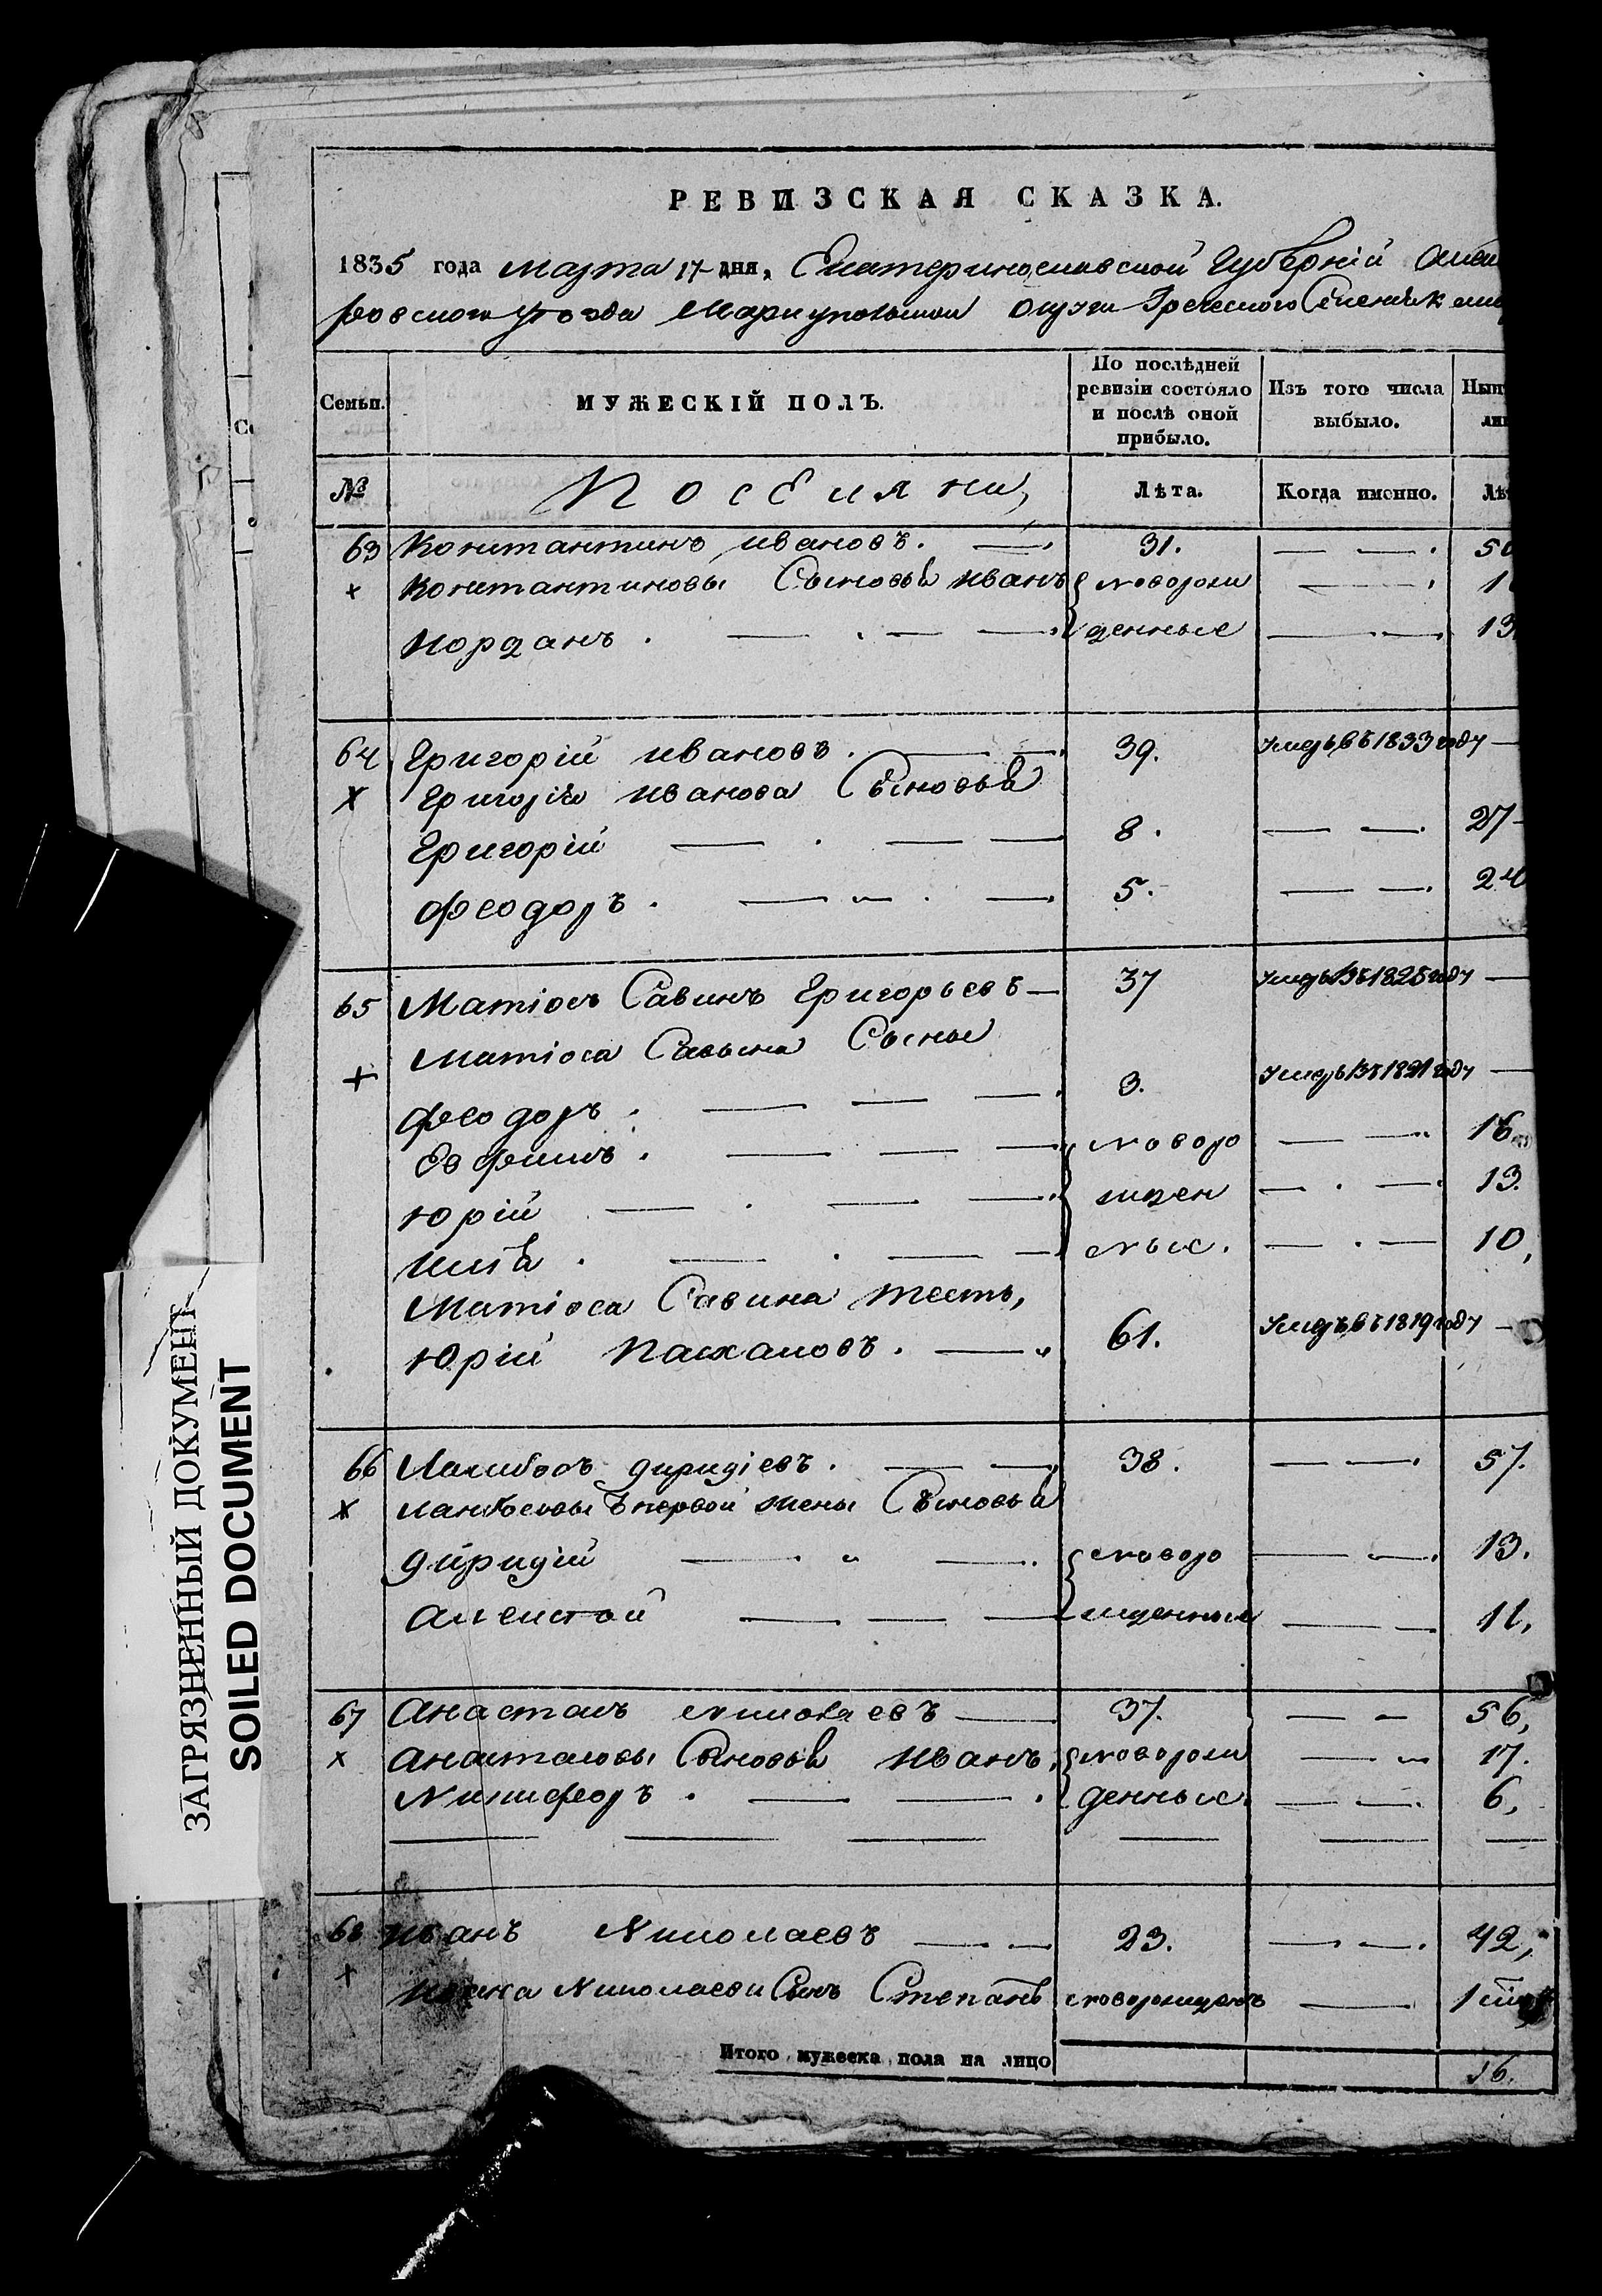 РЕВИЗСКАЯ СКАЗКА.
1835 года Марта 17 дня, Екатеринославской Губерній
ровского уѣзда Мариупольской округи Греческого
Семьи.
МУЖЕСКІЙ ПОЛЪ.
По послѣдней ревизіи состояло и послѣ оной прибыло.
Изъ того числа выбыло.
Нын
№
Поселяни,
Лѣта.
Когда именно.
Лѣ
63 Константинъ Ивановъ. 31. 50
Константиновы Сыновья Иванъ новорож 1
Иорданъ. денные 13
64 Григорій Ивановъ. 39. Умеръ въ 1833 году
Григорія Иванова Сыновья
Григорій 8. 27
Феодоръ. 5. 24
65 Матіосъ Савинъ Григорьевъ 37 Умеръ въ 1825 году
Матіоса Савына Сыны
Феодоръ. 3. Умеръ въ 1821 году
Евфимъ. новоро 16
Юрій жден 13.
Илія. ные. 10,
Матіоса Савина тесть,
Юрій Пасхаловъ. 61. Умеръ въ 1819 году
66 дириціевъ. 38. 57.
первой жены Сыновья
Дирицій новоро 13.
Алексѣй жденные 11,
67 Анастасъ Николаевъ 37. 56,
Анастасовы Сыновья Иванъ, новорож 17.
Никифоръ. денные. 6,
68 Иванъ Николаевъ 23. 42,
Ивана Николаева Сынъ Степанъ новорожденъ 1
Итого мужеска пола на лицо 16.
ЗАГРЯЗНЕННЫЙ ДОКУМЕНТ
SOILED DOCUMENT